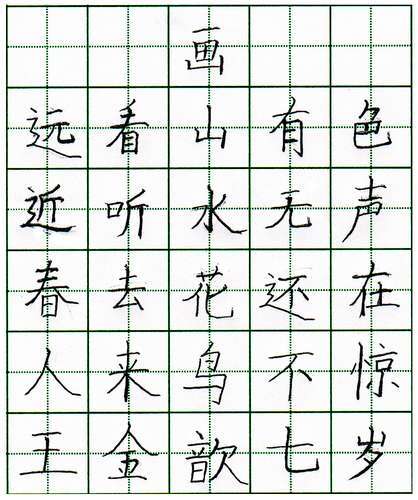 画
远看山有色
近听水无声
春去花还在
人来鸟不惊
王金歆七岁